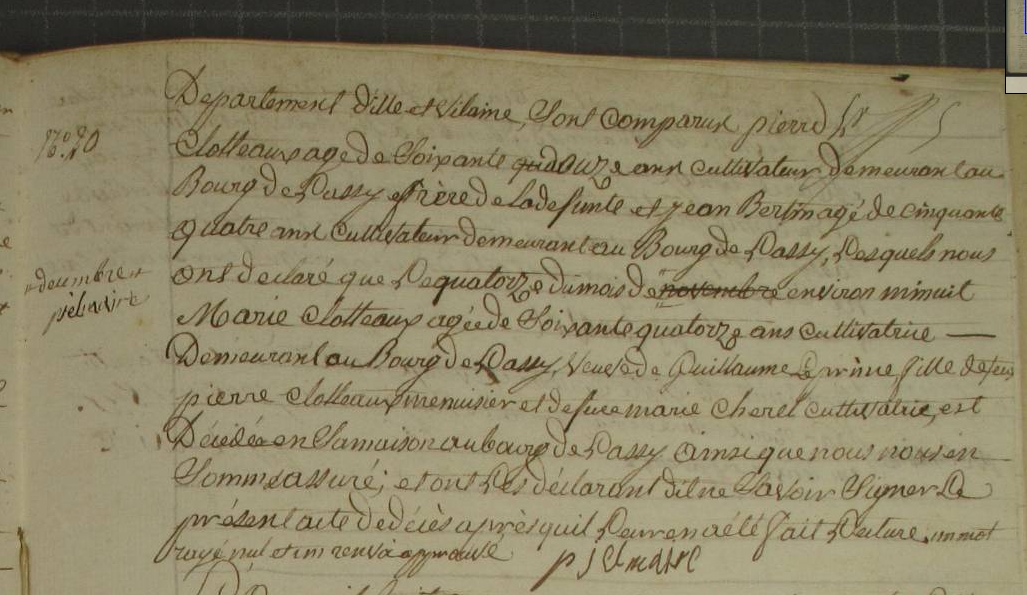 Departement dille et vilaine, Sont comparus pierre
N.° 20
Clotteaux agé de Soixante douze ans cultivateur demeurant au
Bourg de Passy frère de la defunte et jean Bertin agé de cinquante
quatre ans cultivateur demeurant au Bourg de Passy, Lesquels nous
ont declaré que Le quatorze du mois de novembre environ minuit
decembre
Marie Clotteaux agée de Soixante quatorze ans cultivatrice
Demeurant au Bourg de Passy, veuve de Guillaume Leprince, fille de feu
pierre Clotteaux menuisier et de feue marie cherel cultivatrice, est
Décédée en Sa maison au bourg de Passy ainsi que nous nous en
Somme assuré, et ont Les déclarant dit ne Savoir Signer Le
présent acte de décès après quil Leur en a été fait Lecture, un mot
rayé nul et un renvoi approuvé